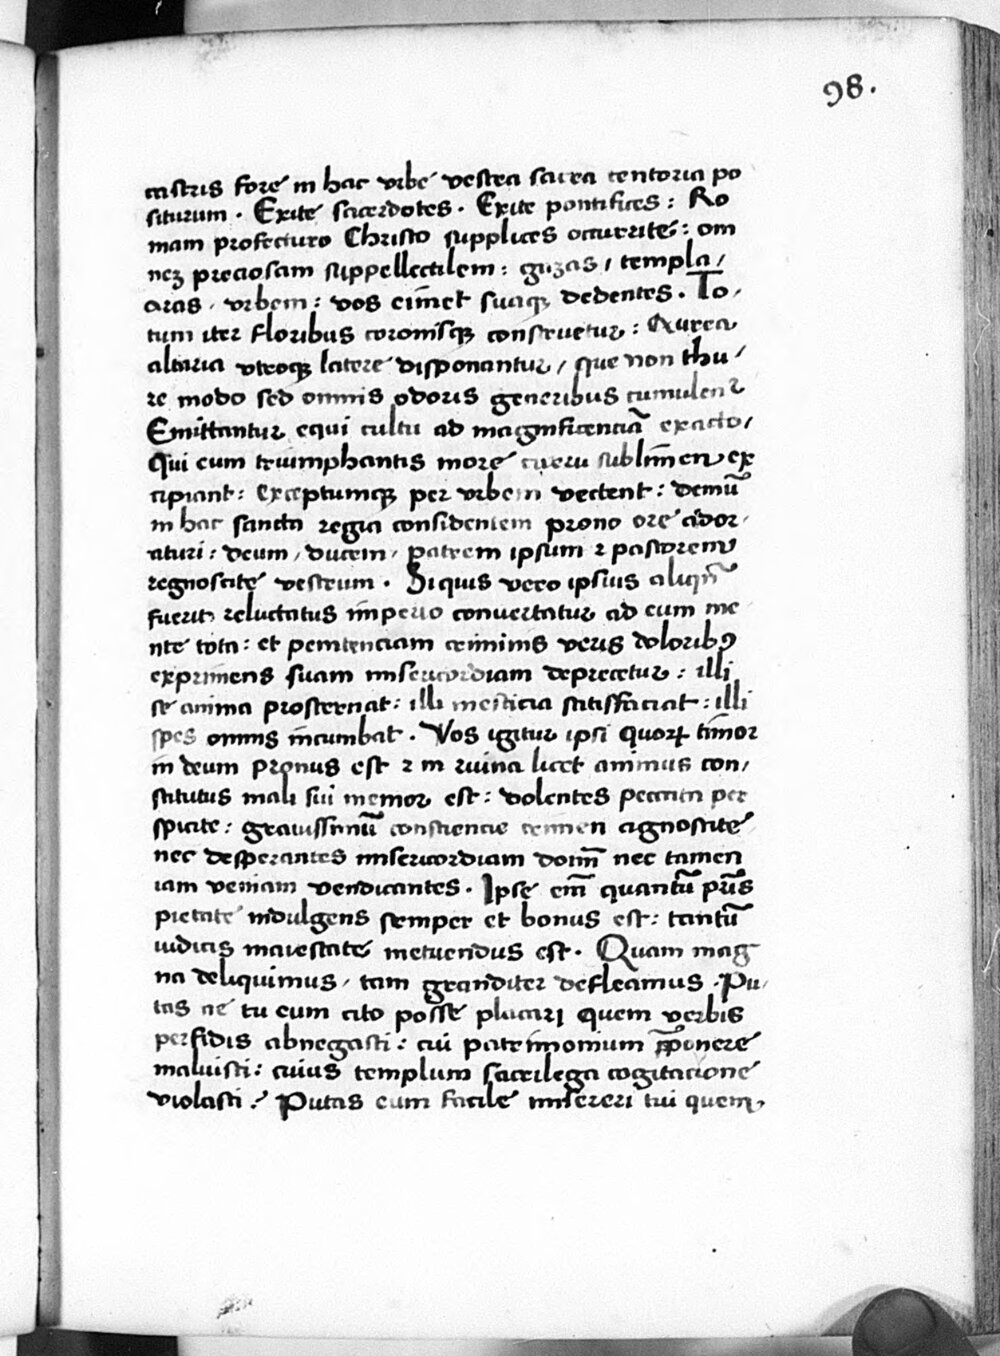 98.
castris fore in hac vrbe vestra sacra tentoria po
siturum . Exite sacerdotes . Exite pontifices : Ro
mam profecturo Christo supplices occurrite : om
neꝫ preciosam suppellectilem : gazas / templa /
aras , vrbem : vos eim̄et suaqꝫ dedentes . To,
tum iter floribus coronisqꝫ consternetur : Aurea
altaria vtroqꝫ latere disponantur / que non thu /
re modo sed omnis odoris generibus cumulent᷑
Emittantur equi cultu ad magnificenciā exacto /
Qui eum triumphantis more curru sublimen ex
cipiant : exceptumqꝫ per vrbem vectent : demū
in hac sancta regia considentem prono ore ador,
aturi : deum , ducem , patrem ipsum ꝛ pastorem
regnoscite vestrum . Si quis vero ipsius aliqn̄
fuerit reluctatus imperio conuertatur ad eum me
nte tota : et penitenciam criminis veris doloribꝰ
exprimens suam misericordiam deprecetur : illi
se anima prosternat : illi mesticia satisfaciat : illi
spes omnis incumbat . Vos igitur ipsi quoꝝ timor
in deum pronus est ꝛ in ruina licet animus con,
stitutus mali sui memor est : dolentes peccata per
spicite : grauissimū consciencie crimen agnoscite
nec desperantes misericordiam domī nec tamen
iam veniam vendicantes . Ipse em̄ quantū pr̄is
pietate indulgens semper et bonus est : tantū
iudicis maiestate metuendus est . Quam mag
na deliquimus , tam granditer defleamus . Pu,
tas ne tu eum cito posse placari quem verbis
perfidis abnegasti : cui patrimonium p̄ponere
maluisti : cuius templum sacrilega cogitacione
violasti ? Putas eum facile misereri tui quem,